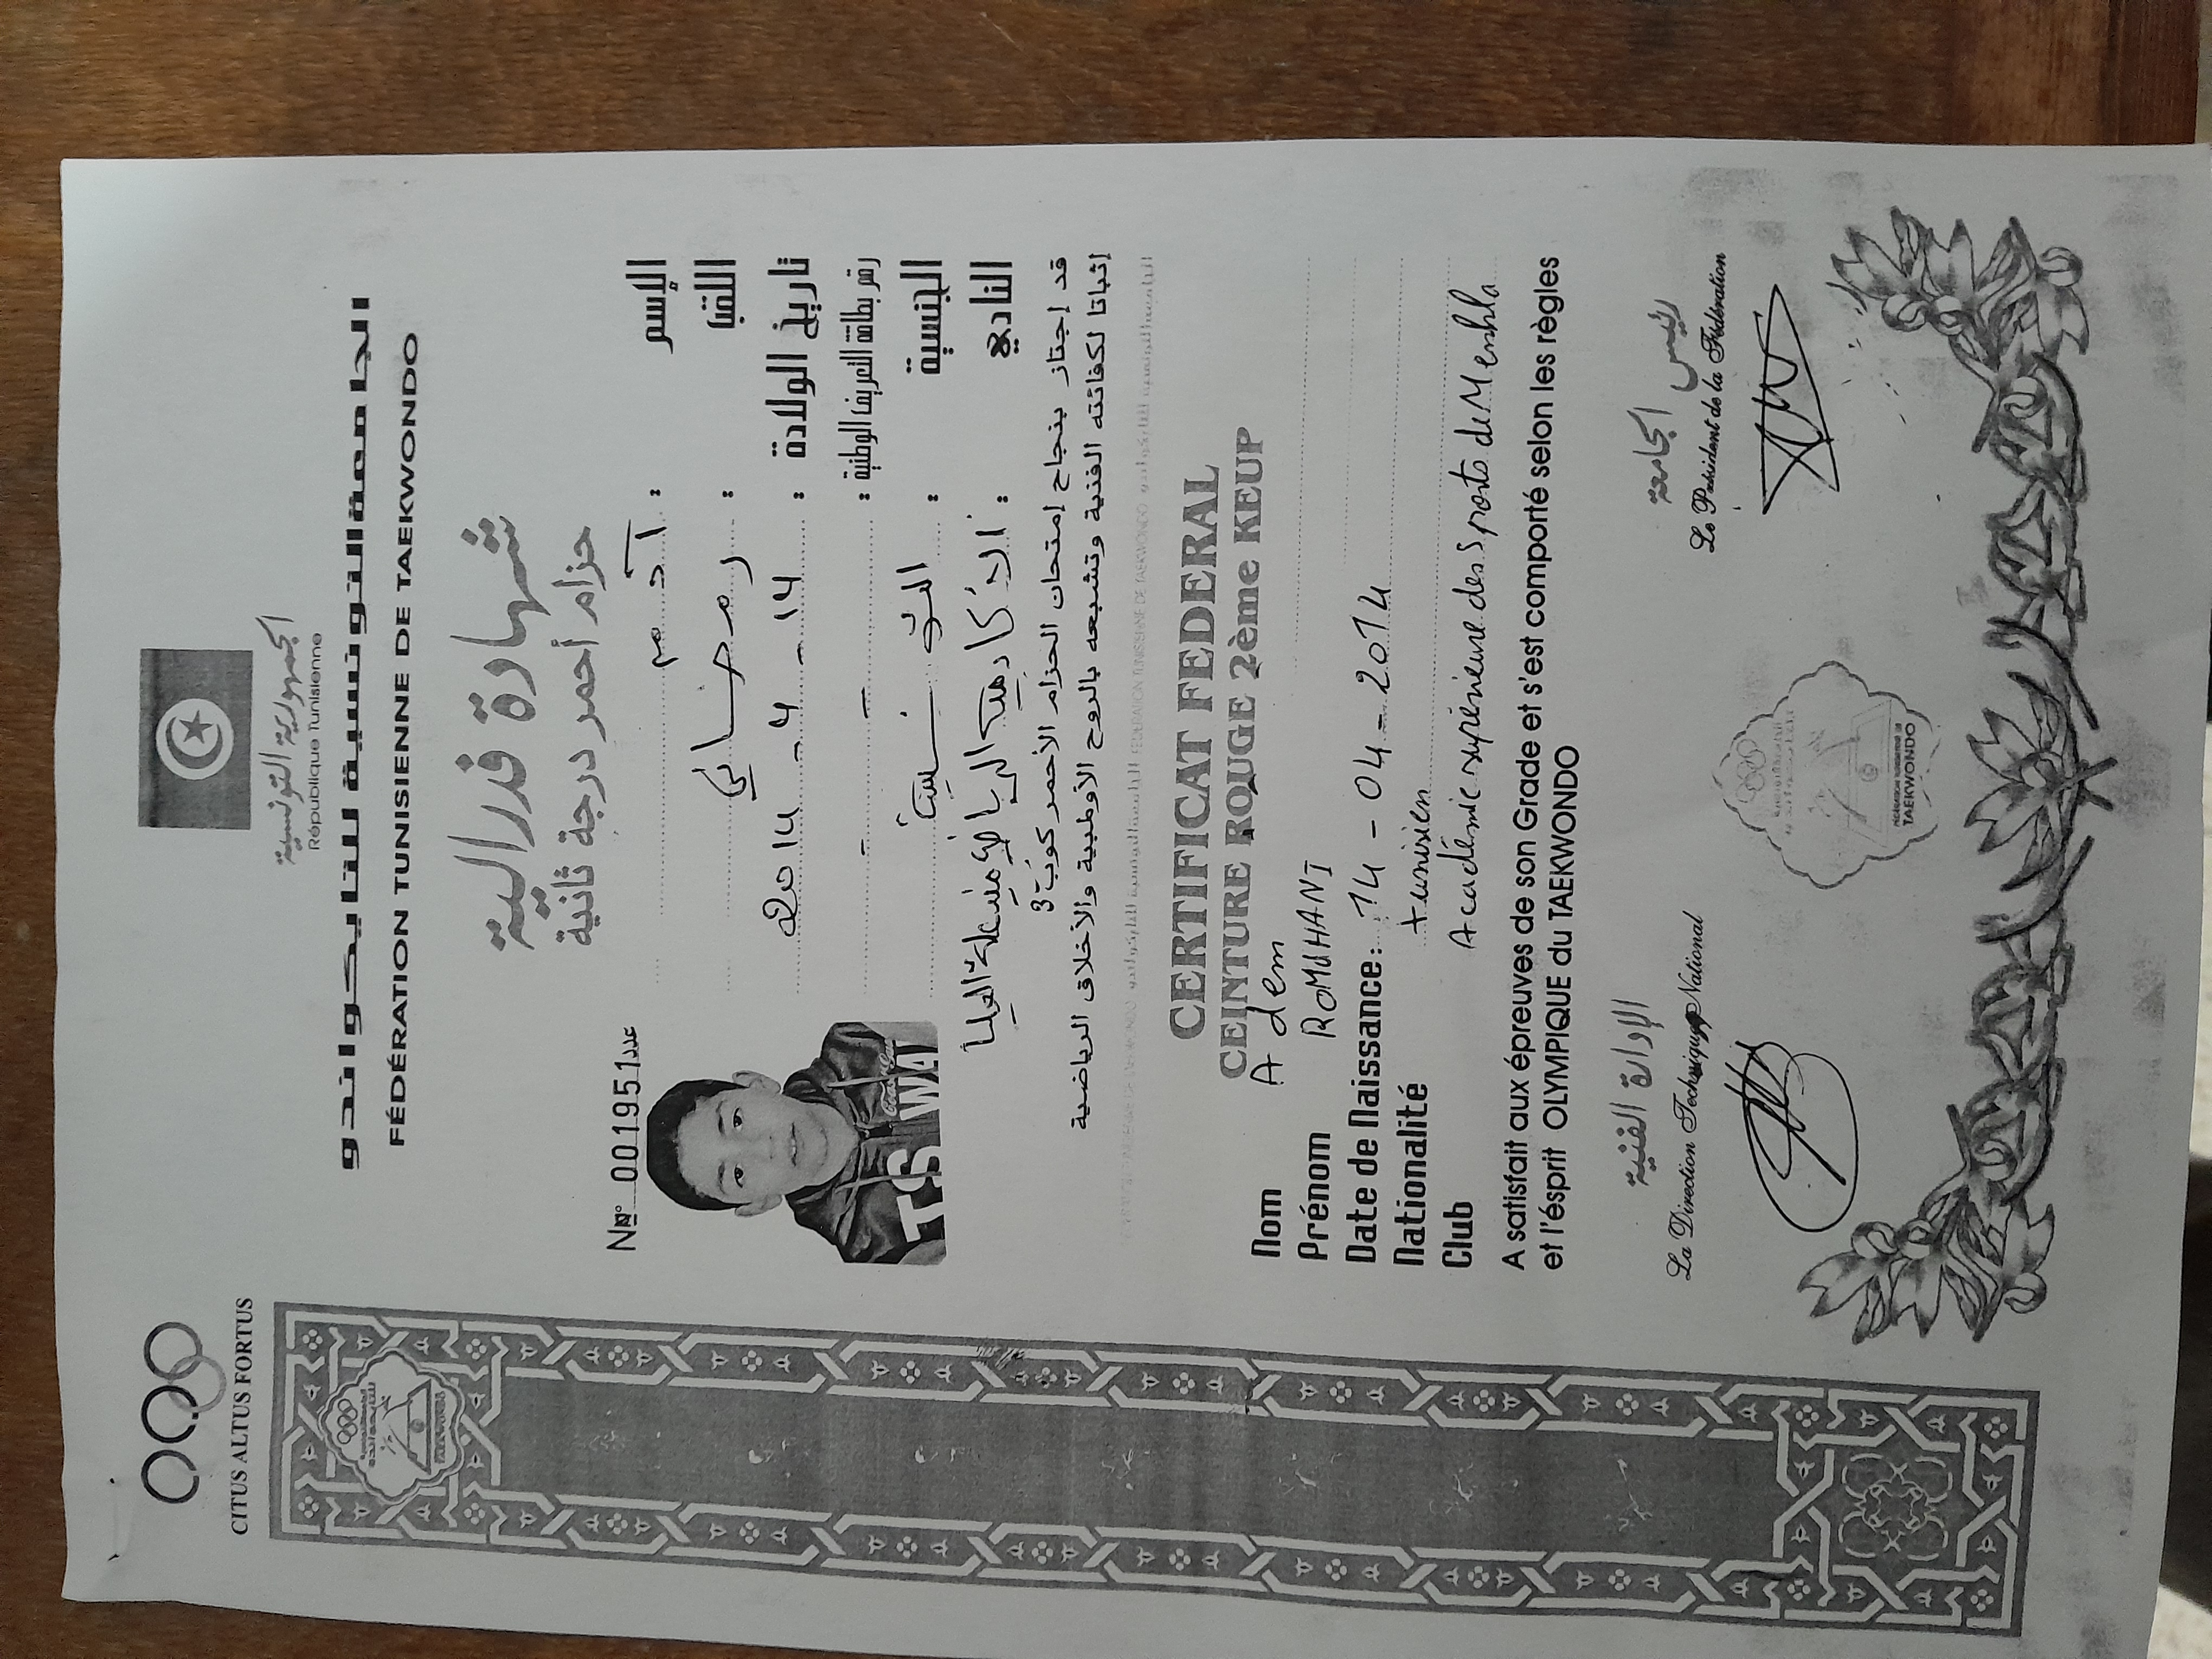 CITUS ALTUS FORTUS
الجمهورية التونسية
République Tunisienne
الجامعة التونسية للتايكواندو
FÉDÉRATION TUNISIENNE DE TAEKWONDO
شهادة فدرالية
حزام أحمر درجة ثانية
N° 001951 عدد
الإسم : آدم
اللقب : رمضاني
تاريخ الولادة : 14 - 4 - 2014
رقم بطاقة التعريف الوطنية : - -
الجنسية : التونسية
النادي : الأكاديمية الرياضية
قد إجتاز بنجاح إمتحان الحزام الأحمر كوب
إثباتا لكفائته الفنية وتشبعه بالروح الأولمبية والأخلاق الرياضية
CERTIFICAT FEDERAL
CEINTURE ROUGE 2ème KEUP
Nom Adem
Prénom ROMDHANI
Date de Naissance: 14 - 04 - 2014
Nationalité tunisien
Club Académie supérieure des sports de Menhla
A satisfait aux épreuves de son Grade et s'est comporté selon les règles
et l'ésprit OLYMPIQUE du TAEKWONDO
الإدارة الفنية
La Direction Technique National
رئيس الجامعة
Le Président de la Fédération
TAEKWONDO